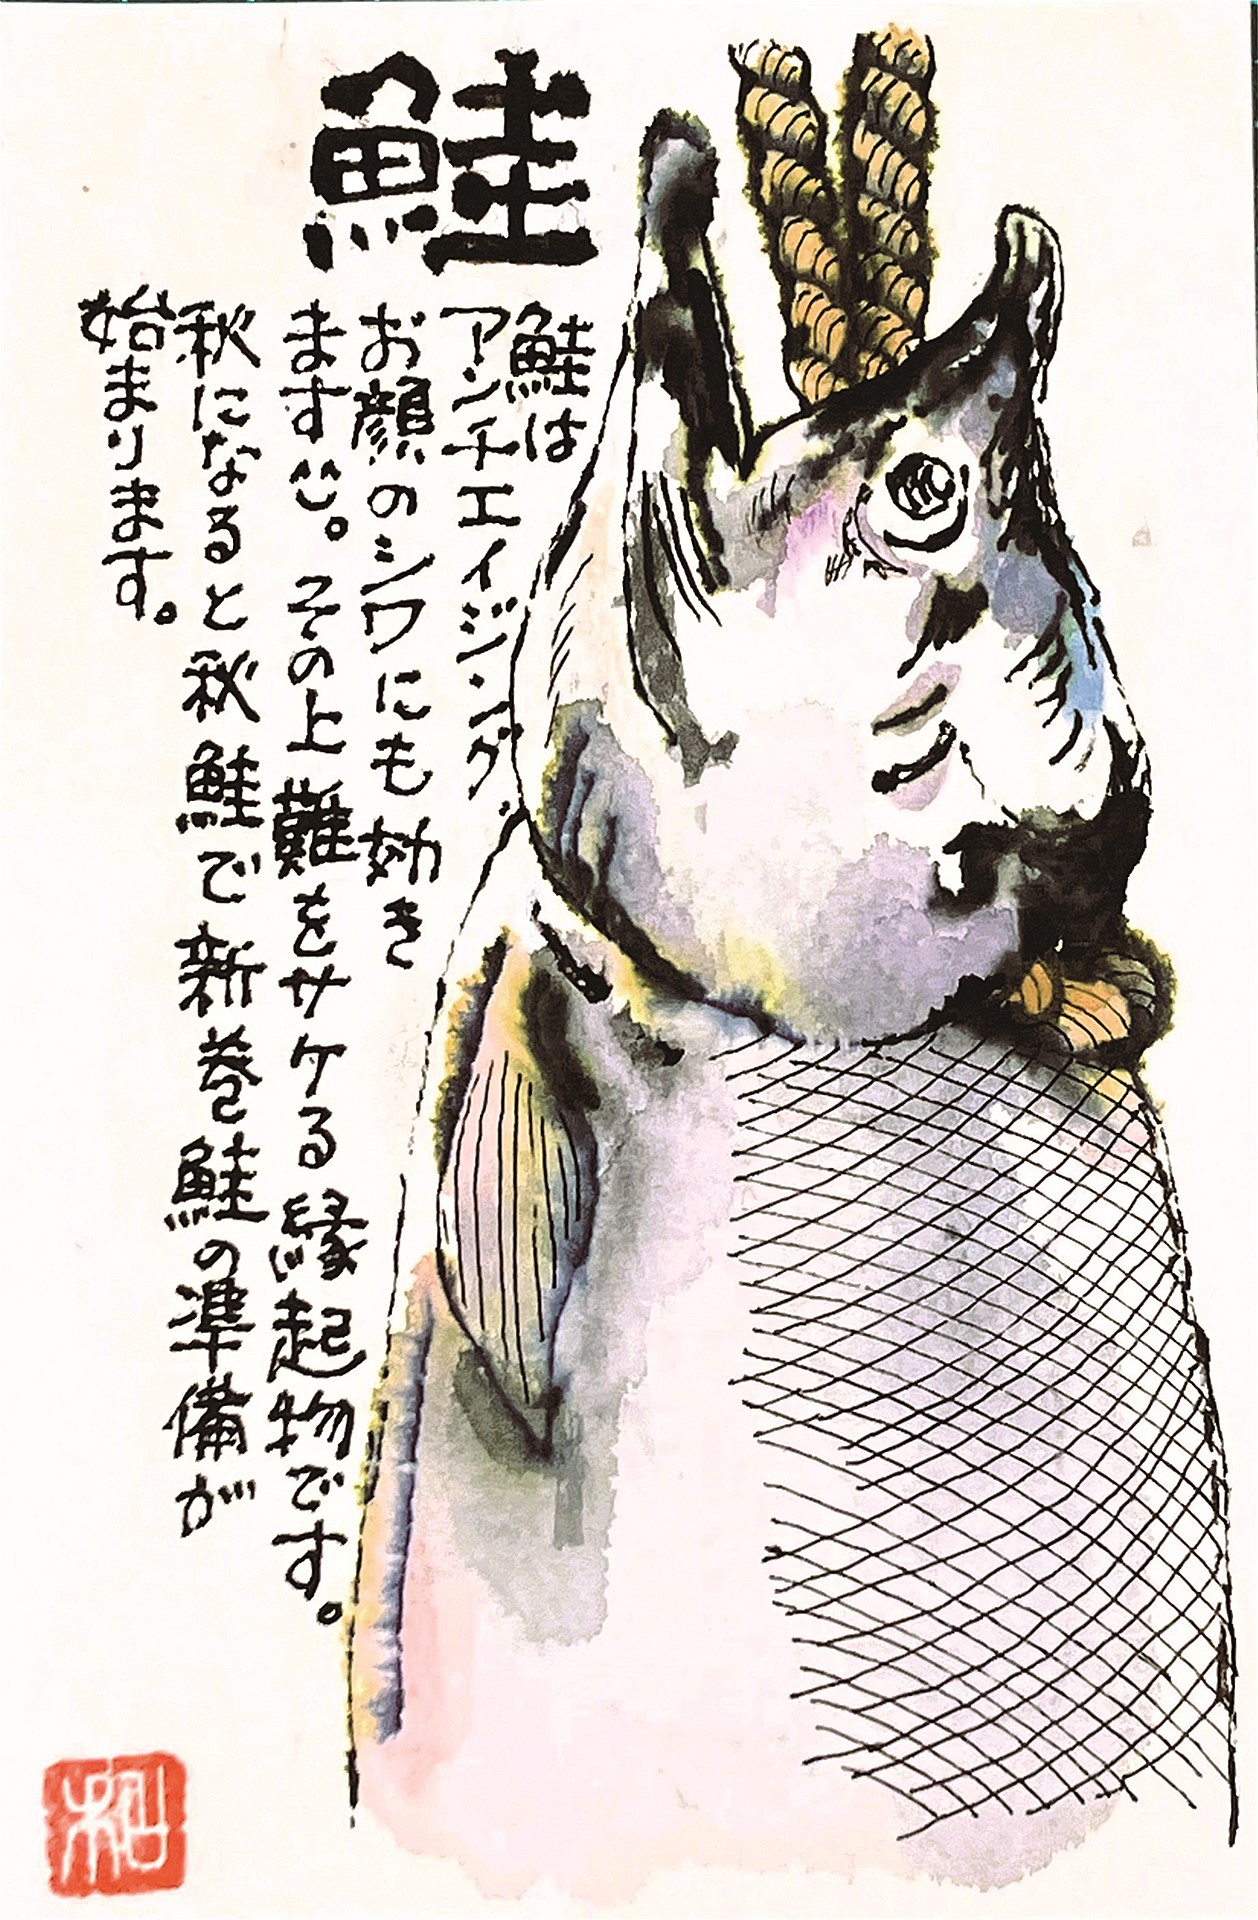 鮭
鮭は
アンチエイジング。
お顔のシワにも効き
ます^^。その上難をサケる縁起物です。
秋になると秋鮭で新巻鮭の準備が
始まります。
和